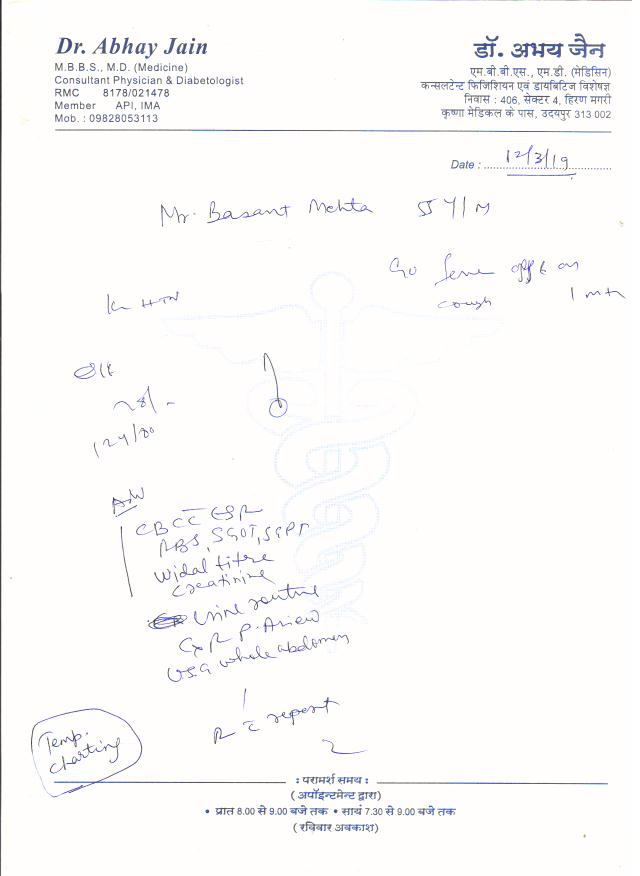 Dr. Abhay Jain
M.B.B.S., M.D. (Medicine)
Consultant Physician & Diabetologist
RMC 8178/021478
Member API, IMA
Mob. : 09828053113
डॉ. अभय जैन
एम.बी.बी.एस., एम.डी. (मेडिसिन)
कन्सलटेन्ट फिजिशियन एवं डायबिटिज विशेषज्ञ
निवास : 406, सेक्टर 4, हिरण मगरी
कृष्णा मेडिकल के पास, उदयपुर 313 002
Date : 12/3/19
Mr. Basant Mehta 55 Y/M
fever off & on
cough 1 mth
HTN
Adv
CBC c̄ ESR
RBS, SGOT, SGPT
Widal titre
Creatinine
Urine routine
CxR P.A view
USG whole abdomen
R c̄ report
Temp.
charting
: परामर्श समय :
( अपॉइन्टमेन्ट द्वारा)
• प्रात 8.00 से 9.00 बजे तक • सायं 7.30 से 9.00 बजे तक
( रविवार अवकाश)